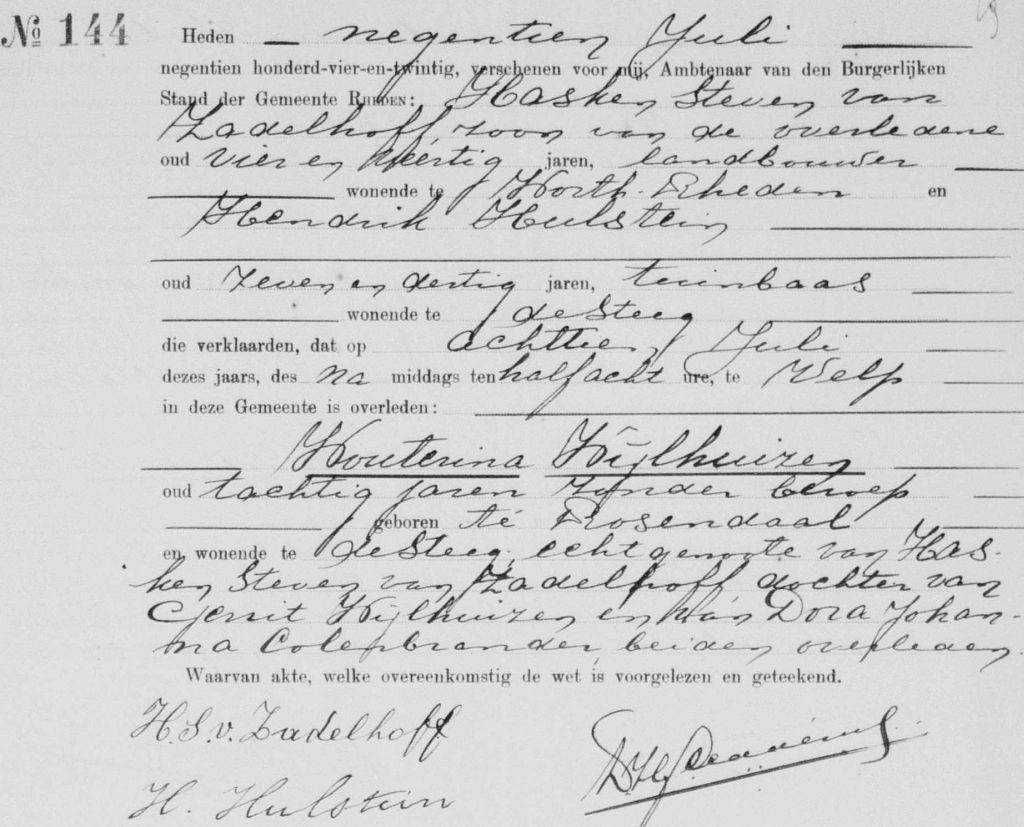 № 144
Heden negentien Juli
negentien honderd-vier-en-twintig, verschenen voor mij, Ambtenaar van den Burgerlijken
Stand der Gemeente RHEDEN: Hasken Steven van
Zadelhoff, zoon van de overledene
oud vier en veertig jaren, landbouwer
wonende te Worth-Rheden en
Hendrik Hulstein
oud zeven en dertig jaren, tuinbaas
wonende te de Steeg
die verklaarden, dat op achttien Juli
dezes jaars, des na middags ten half acht ure, te Velp
in deze Gemeente is overleden:
Wouterina Wijlhuizen
oud tachtig jaren zonder beroep
geboren te Rosendaal
en wonende te de Steeg, echtgenoote van Has-
ken Steven van Zadelhoff dochter van
Gerrit Wijlhuizen en van Dora Johan-
na Colenbrander, beiden overleden.
Waarvan akte, welke overeenkomstig de wet is voorgelezen en geteekend.
H.S.v. Zadelhoff
H. Hulstein